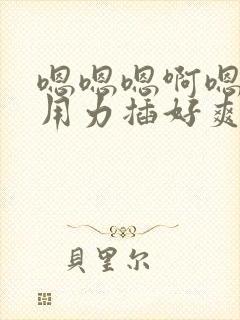 嗯嗯嗯啊嗯
用力插好爽
貝里尔